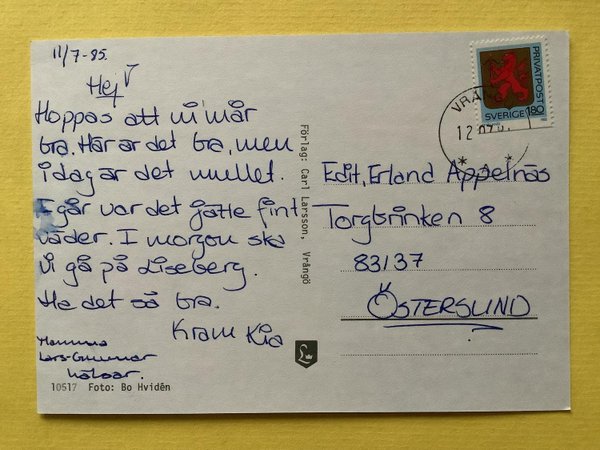 11/7-85.
Hej
Hoppas att ni mår
bra. Här är det bra, men
idag är det mullet.
I går var det jätte fint
väder. I morgon ska
vi gå på Liseberg.
Ha det så bra.
Kram Kia
Mamma
Lars-Gunnar
hälsar.
10517 Foto: Bo Hvidén
Förlag: Carl Larsson, Vrångö
PRIVATPOST
SVERIGE 180
VRÅN
12.07.8
Edit, Erland Appelnäs
Torgbrinken 8
83137
ÖSTERSUND